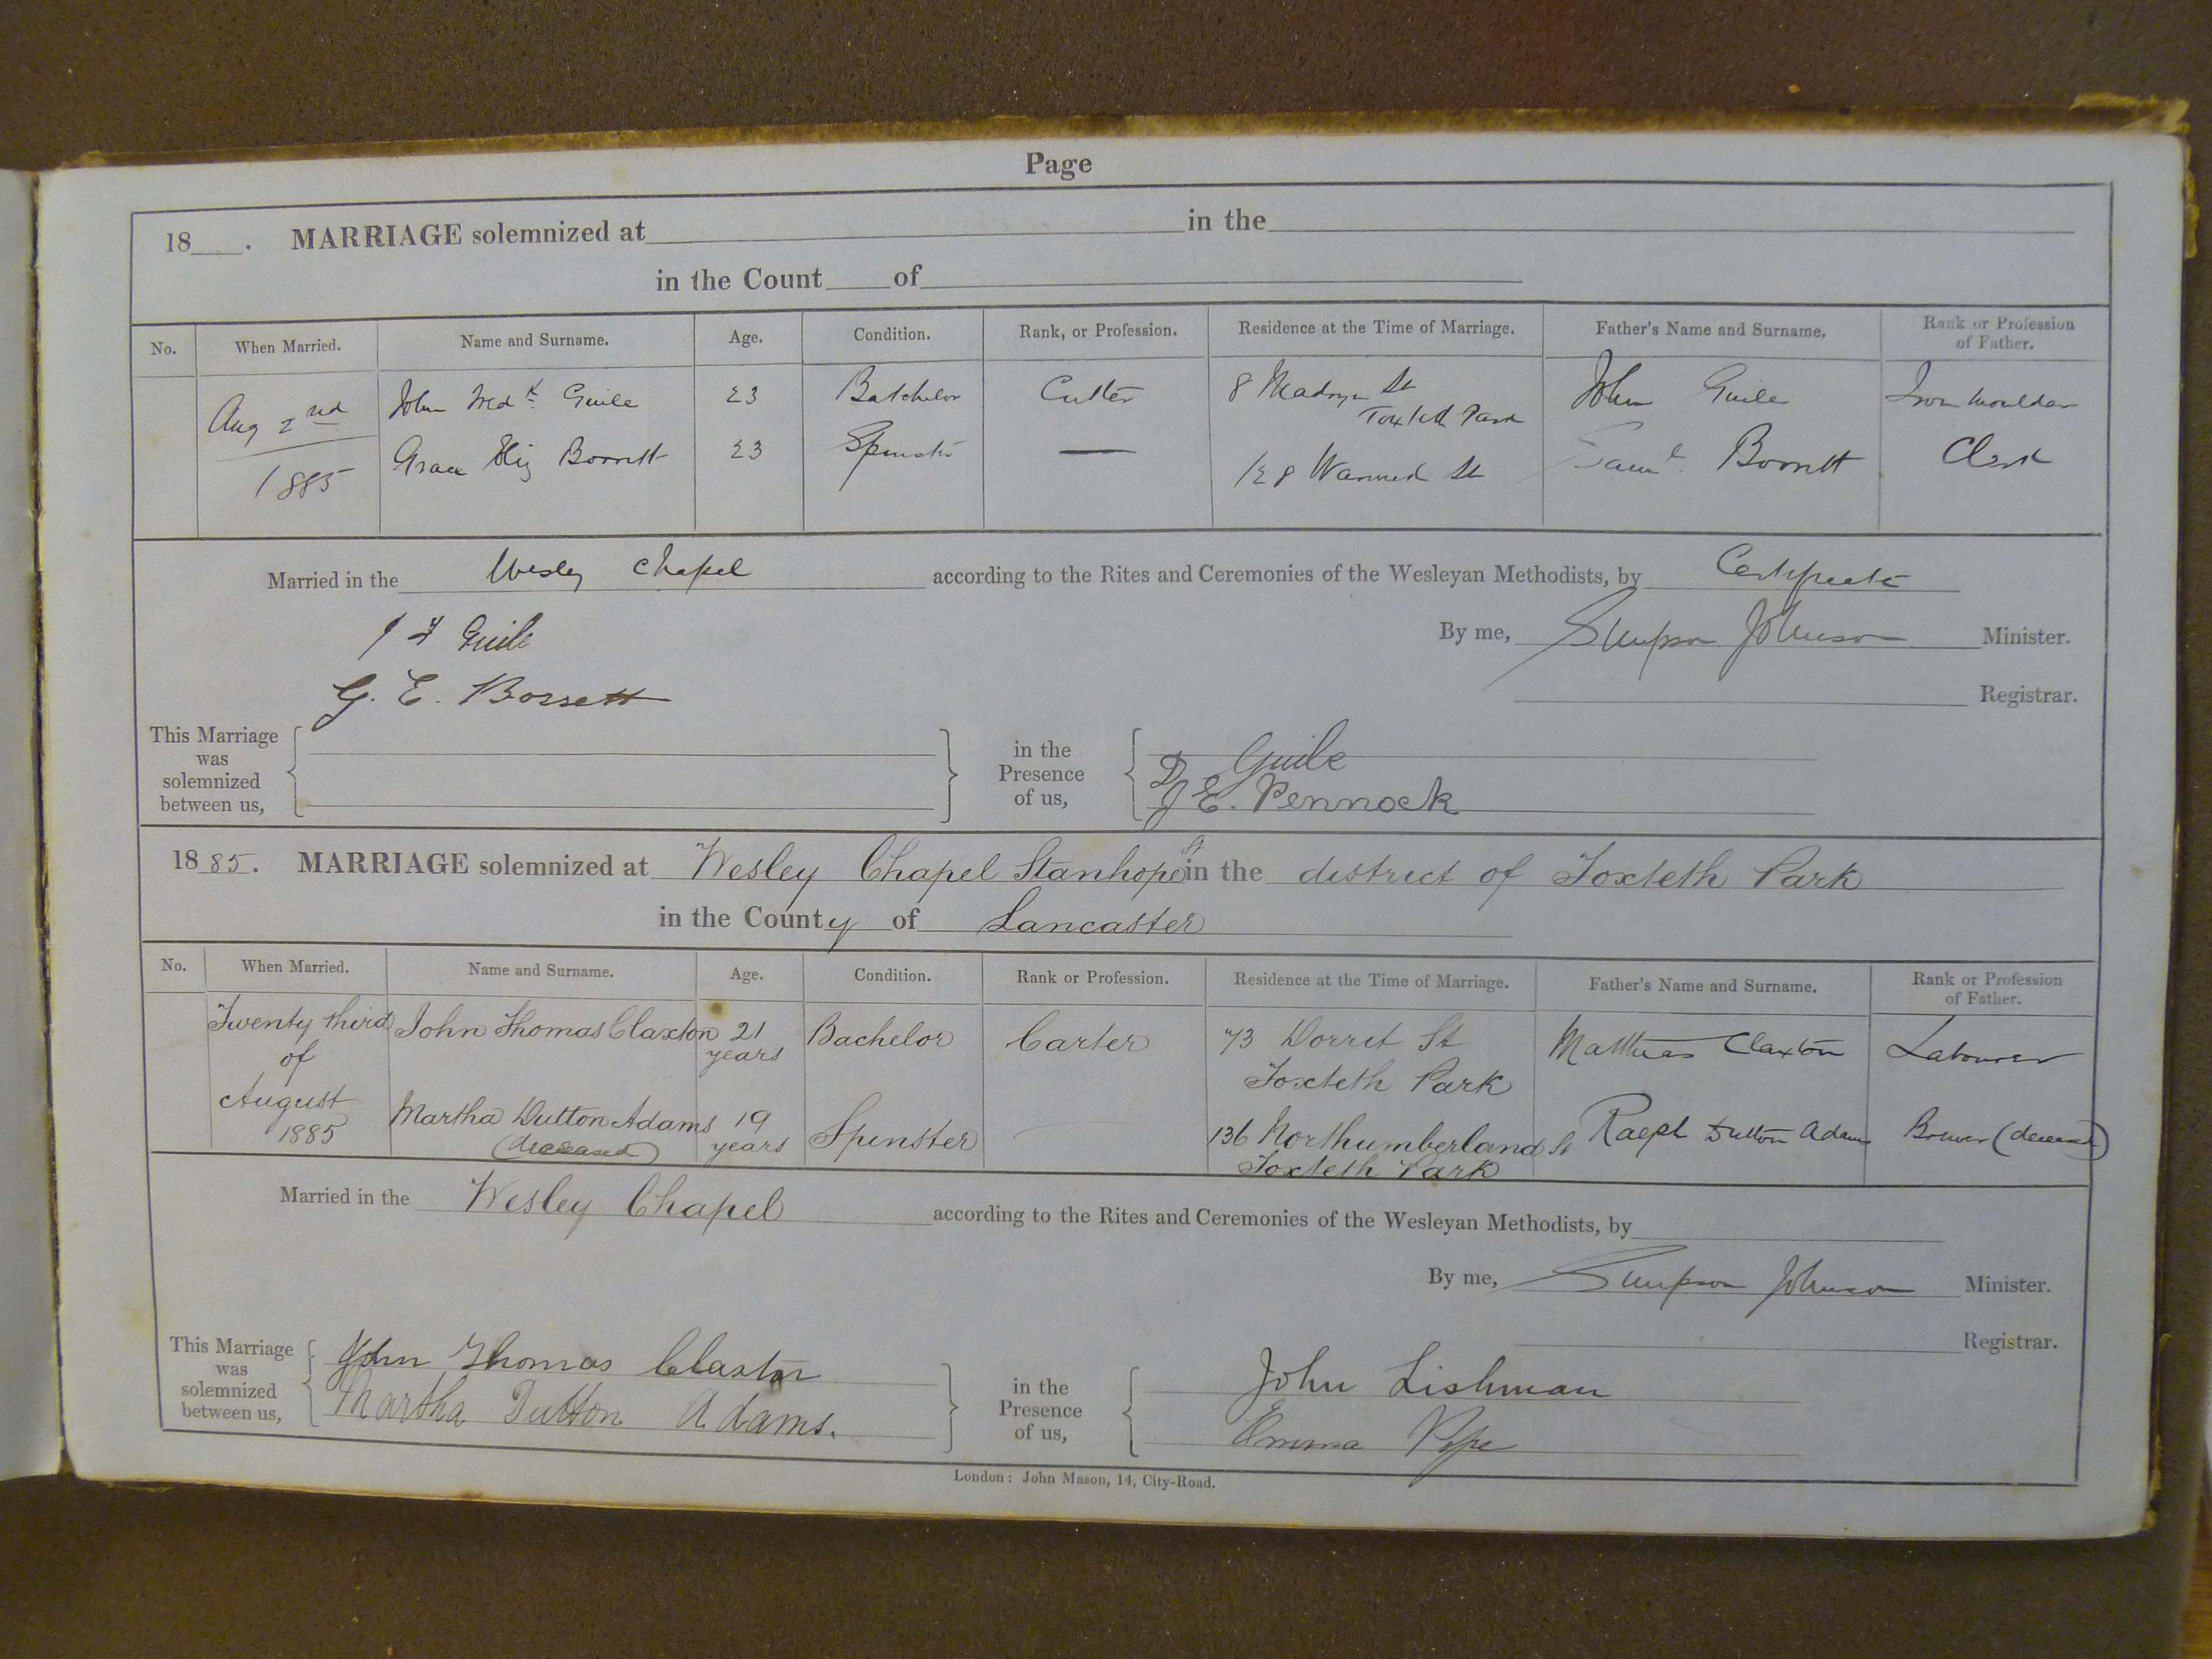 Page
18 . MARRIAGE solemnized at in the
in the Count of
No. When Married. Name and Surname. Age. Condition. Rank, or Profession. Residence at the Time of Marriage. Father's Name and Surname. Rank or Profession of Father.
Aug 2nd John Fredk Guile 23 Batchelor Cutter 8 Madryn St John Guile Iron Moulder
Toxteth Park
1885 Grace Eliz Borrett 23 Spinster — 128 Warwick St Saml Borrett Clerk
Married in the Wesley Chapel according to the Rites and Ceremonies of the Wesleyan Methodists, by Certificate
J F Guile By me, Simpson Johnson Minister.
G. E. Borrett Registrar.
This Marriage was solemnized between us, in the Presence of us, Guile
E. Pennock
1885. MARRIAGE solemnized at Wesley Chapel Stanhope St in the district of Toxteth Park
in the County of Lancaster
No. When Married. Name and Surname. Age. Condition. Rank or Profession. Residence at the Time of Marriage. Father's Name and Surname. Rank or Profession of Father.
Twenty third John Thomas Claxton 21 Bachelor Carter 73 Dorrit St Matthias Claxton Labourer
of years Toxteth Park
August Martha Dutton Adams 19 Spinster 136 Northumberland St Ralph Dutton Adams Brewer (deceased)
1885 (deceased) years Toxteth Park
Married in the Wesley Chapel according to the Rites and Ceremonies of the Wesleyan Methodists, by
By me, Simpson Johnson Minister.
Registrar.
This Marriage was solemnized between us, John Thomas Claxton in the Presence of us, John Lishman
Martha Dutton Adams. Emma Pope
London: John Mason, 14, City-Road.